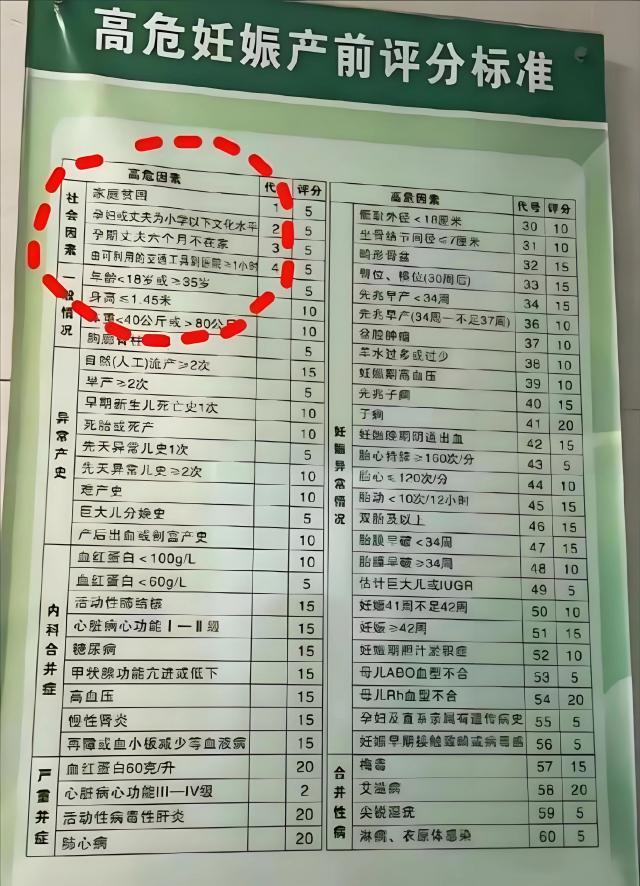 高危妊娠产前评分标准
高危因素 代 评分
社会因素
家庭贫困 1 5
孕妇或丈夫为小学以下文化水平 2 5
孕期丈夫六个月不在家 3 5
由可利用的交通工具到医院≥1小时 4 5
一般情况
年龄<18岁或≥35岁 5
身高≤1.45米 10
体重<40公斤或>80公斤 10
胸廓脊柱 5
异常产史
自然(人工)流产≥2次 15
早产≥2次 5
早期新生儿死亡史1次 10
死胎或死产 10
先天异常儿史1次 5
先天异常儿史≥2次 10
难产史 10
巨大儿分娩史 5
产后出血或剖宫产史 10
内科合并症
血红蛋白<100g/L 10
血红蛋白<60g/L 5
活动性肺结核 15
心脏病心功能Ⅰ—Ⅱ级 15
糖尿病 15
甲状腺功能亢进或低下 15
高血压 15
慢性肾炎 15
再障或血小板减少等血液病 15
严重并症
血红蛋白60克/升 20
心脏病心功能III—IV级 2
活动性病毒性肝炎 20
肺心病 20
高危因素 代号 评分
妊娠异常情况
骶耻外径<18厘米 30 10
坐骨结节间径≤7厘米 31 10
畸形骨盆 32 15
臀位、横位(30周后) 33 15
先兆早产<34周 34 15
先兆早产(34周一不足37周) 36 10
盆腔肿瘤 37 10
羊水过多或过少 38 10
妊娠期高血压 39 10
先兆子痫 40 15
子痫 41 20
妊娠晚期阴道出血 42 15
胎心持续≥160次/分 43 5
胎心≤120次/分 44 10
胎动<10次/12小时 45 15
双胎及以上 46 15
胎膜早破<34周 47 15
胎膜早破≥34周 48 10
估计巨大儿或IUGR 49 5
妊娠41周不足42周 50 10
妊娠≥42周 51 15
妊娠期胆汁淤积症 52 10
母儿ABO血型不合 53 5
母儿Rh血型不合 54 20
孕妇及直系亲属有遗传病史 55 5
妊娠早期接触致畸或病毒感 56 5
合并性病
梅毒 57 15
艾滋病 58 20
尖锐湿疣 59 5
淋病、衣原体感染 60 5